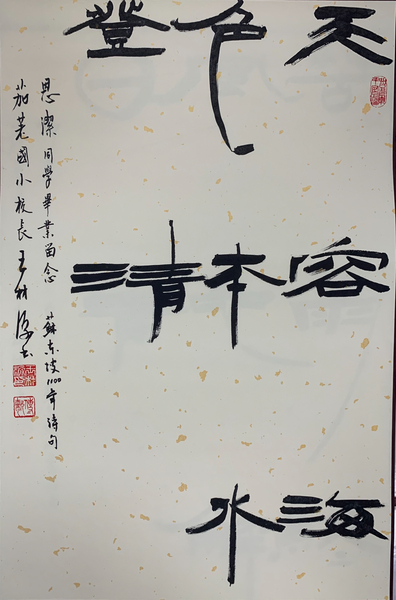 天容海
色本水
登清
思潔同學畢業留念 蘇東坡1100年詩句
茄荖國小校長 王